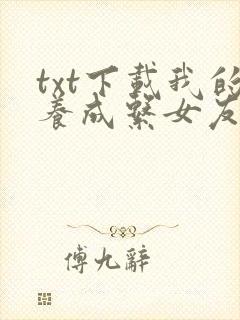 txt下载我的
养成系女友
傅九辞